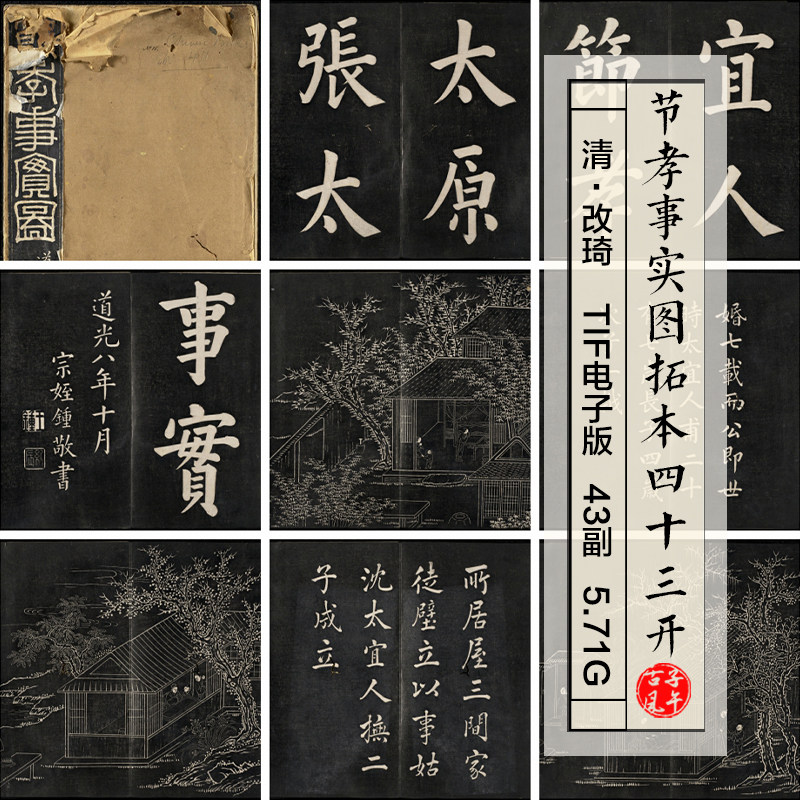 孝事實圖
太原
張太
宜人
節孝
事實
道光八年十月
宗姪鍾敬書
婚七載而公即世
所居屋三間家
徒壁立以事姑
沈太宜人撫二
子成立
节孝事实图拓本四十三开
清·改琦 TIF电子版 43副 5.71G
子午
古风